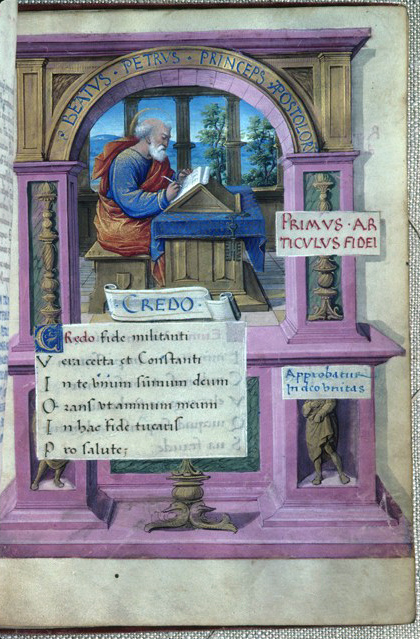 BEATVS · PETRVS · PRINCEPS APOSTOLOR
PRIMVS · AR
TICVLVS FIDEI
CREDO
CRedo fide militanti
Vera certa et Constanti
In te vnum sūmum deum
Orans vt animum meum
In hac fide tuearis
Pro salute;
Approbatur
In deo vnitas